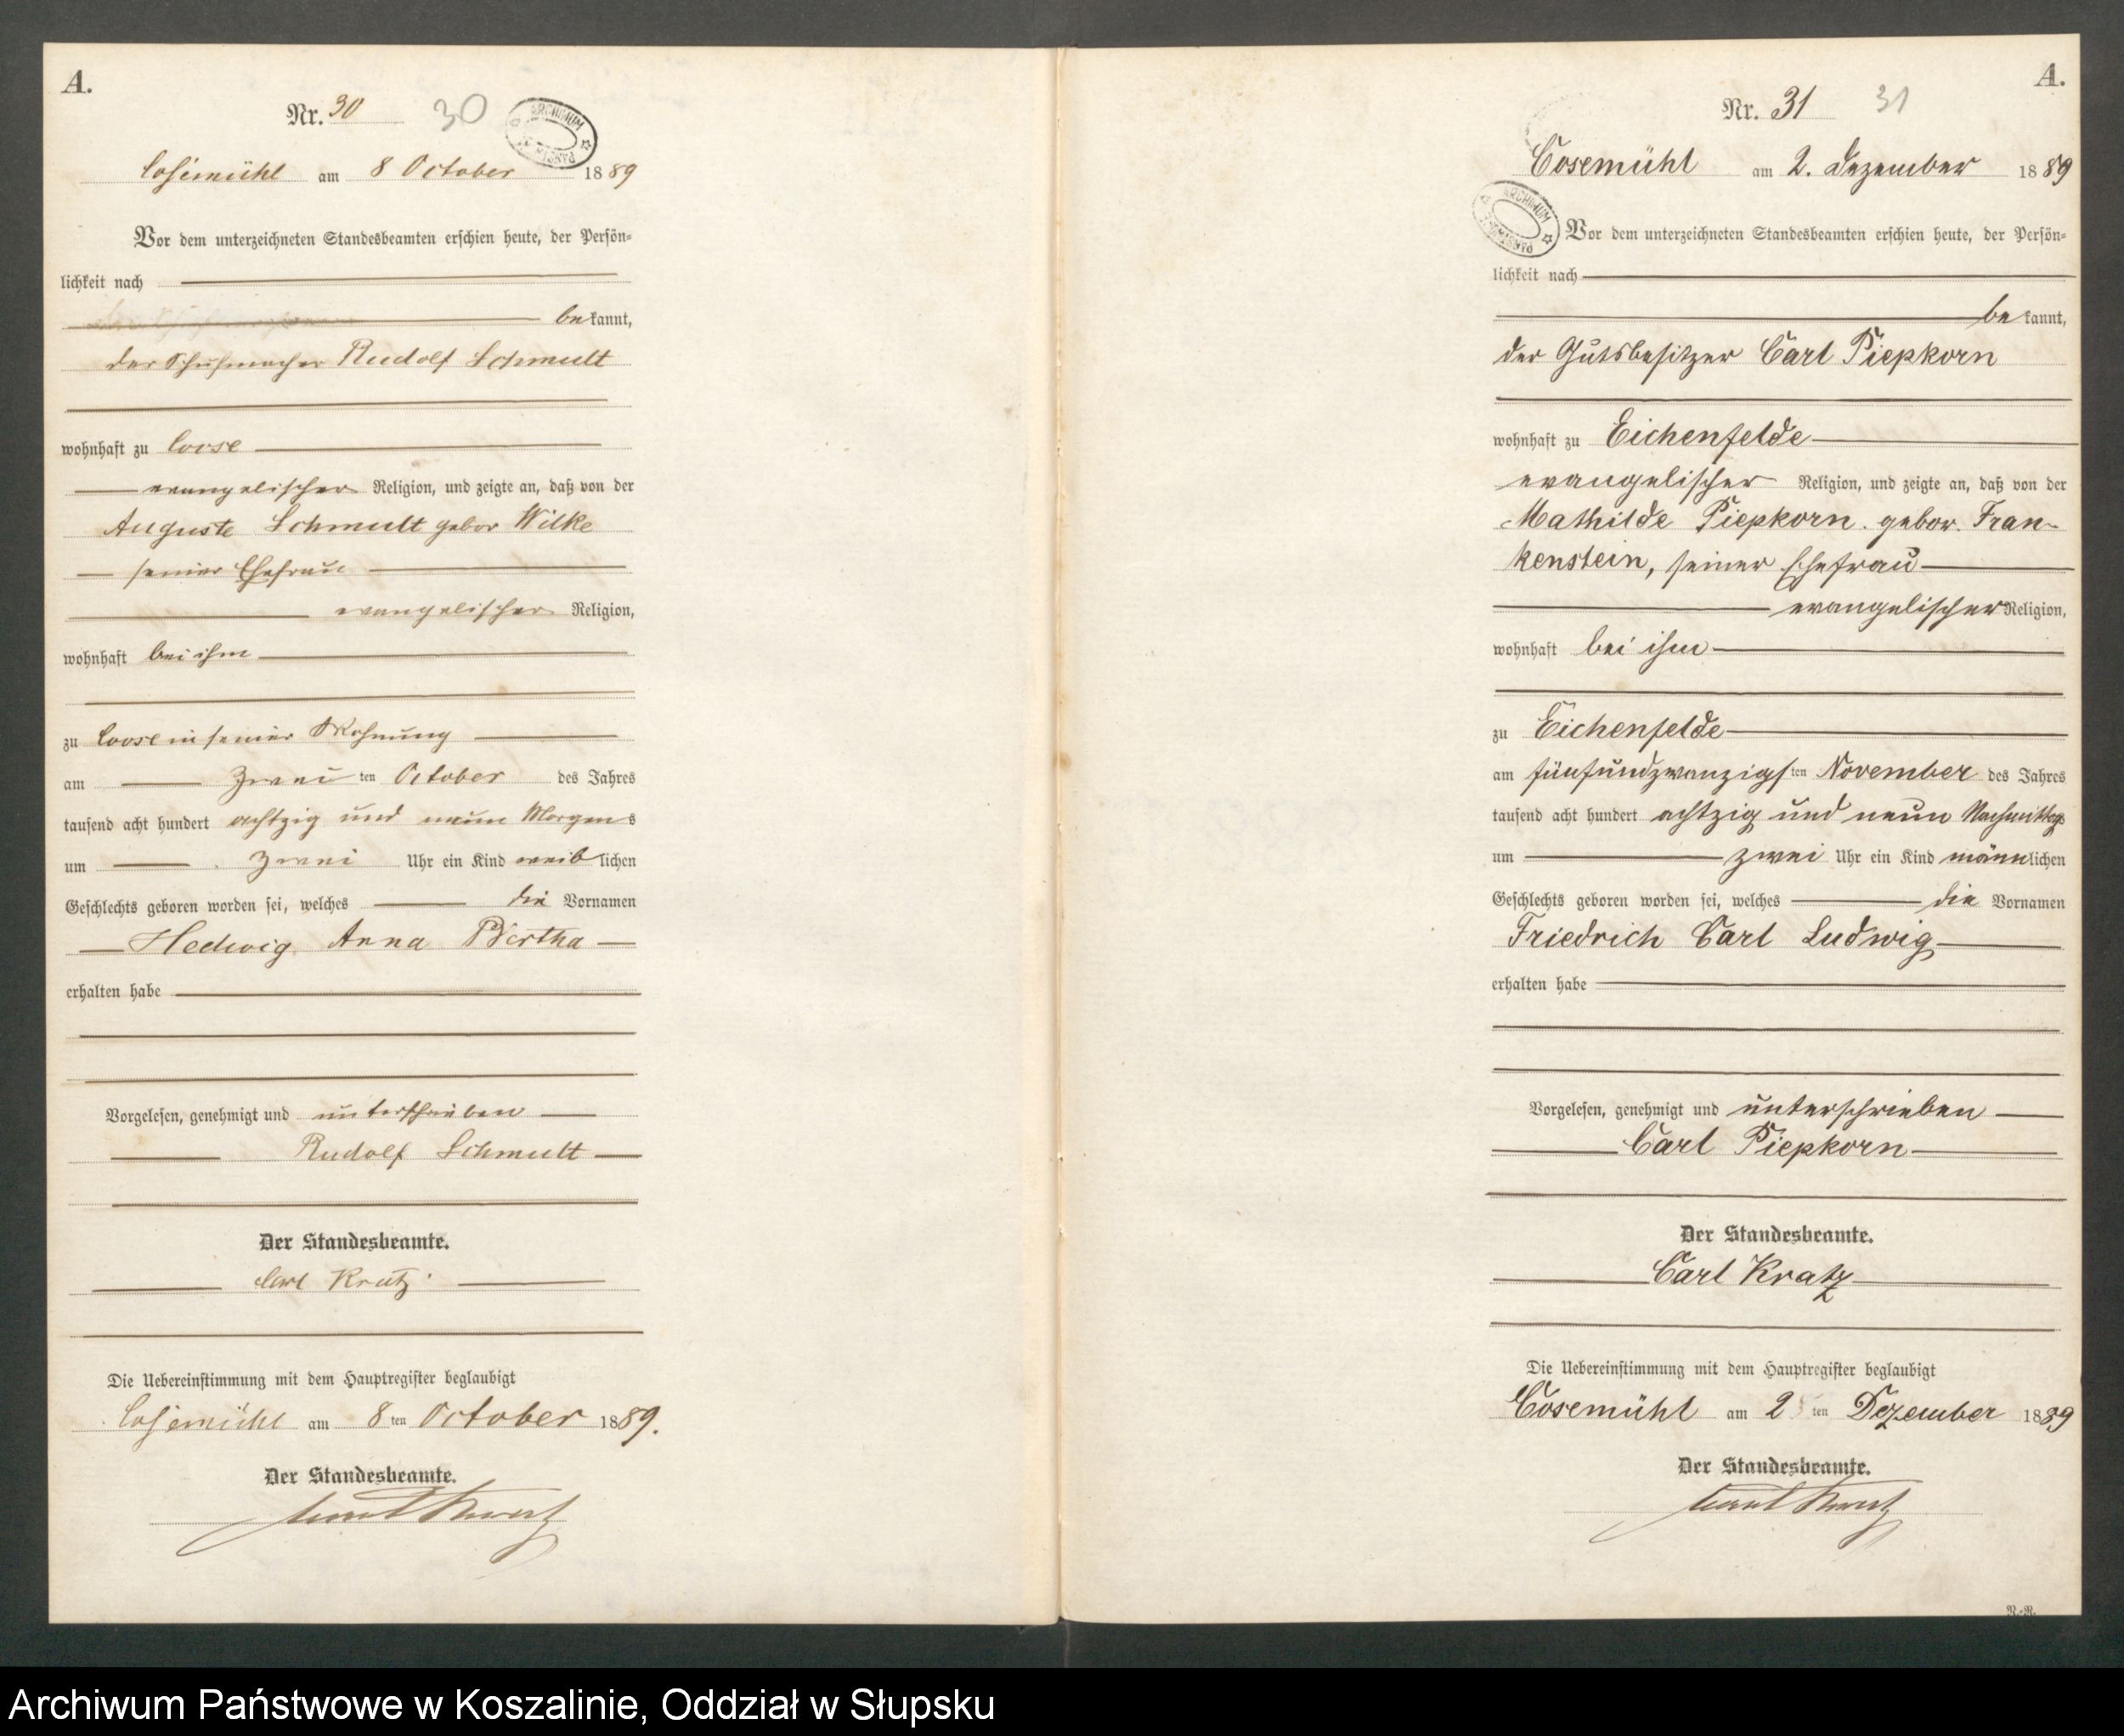 A.
Nr. 30 30
ARCHIWUM
Cosemühl am 8 October 1889
Vor dem unterzeichneten Standesbeamten erschien heute, der Persön-
lichkeit nach
bekannt,
der Schuhmacher Rudolf Schmult
wohnhaft zu Coose
evangelischer Religion, und zeigte an, daß von der
Auguste Schmult gebor Wilke
seiner Ehefrau
evangelischer Religion,
wohnhaft bei ihm
zu Coose in seiner Wohnung
am zweiten October des Jahres
tausend acht hundert achtzig und neun Morgens
um zwei Uhr ein Kind weiblichen
Geschlechts geboren worden sei, welches die Vornamen
Hedwig Anna Bertha
erhalten habe
Vorgelesen, genehmigt und unterschrieben
Rudolf Schmult
Der Standesbeamte.
Carl Kratz
Die Uebereinstimmung mit dem Hauptregister beglaubigt
Cosemühl am 8ten October 1889.
Der Standesbeamte.
Carl Kratz
A.
Nr. 31 31
Cosemühl am 2. Dezember 1889
ARCHIWUM
Vor dem unterzeichneten Standesbeamten erschien heute, der Persön-
lichkeit nach
bekannt,
der Gutsbesitzer Carl Piepkorn
wohnhaft zu Eichenfelde
evangelischer Religion, und zeigte an, daß von der
Mathilde Piepkorn gebor. Fran-
kenstein, seiner Ehefrau
evangelischer Religion,
wohnhaft bei ihm
zu Eichenfelde
am fünfundzwanzigsten November des Jahres
tausend acht hundert achtzig und neun Nachmittags
um zwei Uhr ein Kind männlichen
Geschlechts geboren worden sei, welches die Vornamen
Friedrich Carl Ludwig
erhalten habe
Vorgelesen, genehmigt und unterschrieben
Carl Piepkorn
Der Standesbeamte.
Carl Kratz
Die Uebereinstimmung mit dem Hauptregister beglaubigt
Cosemühl am 2ten Dezember 1889
Der Standesbeamte.
Carl Kratz
R.-R.
Archiwum Państwowe w Koszalinie, Oddział w Słupsku